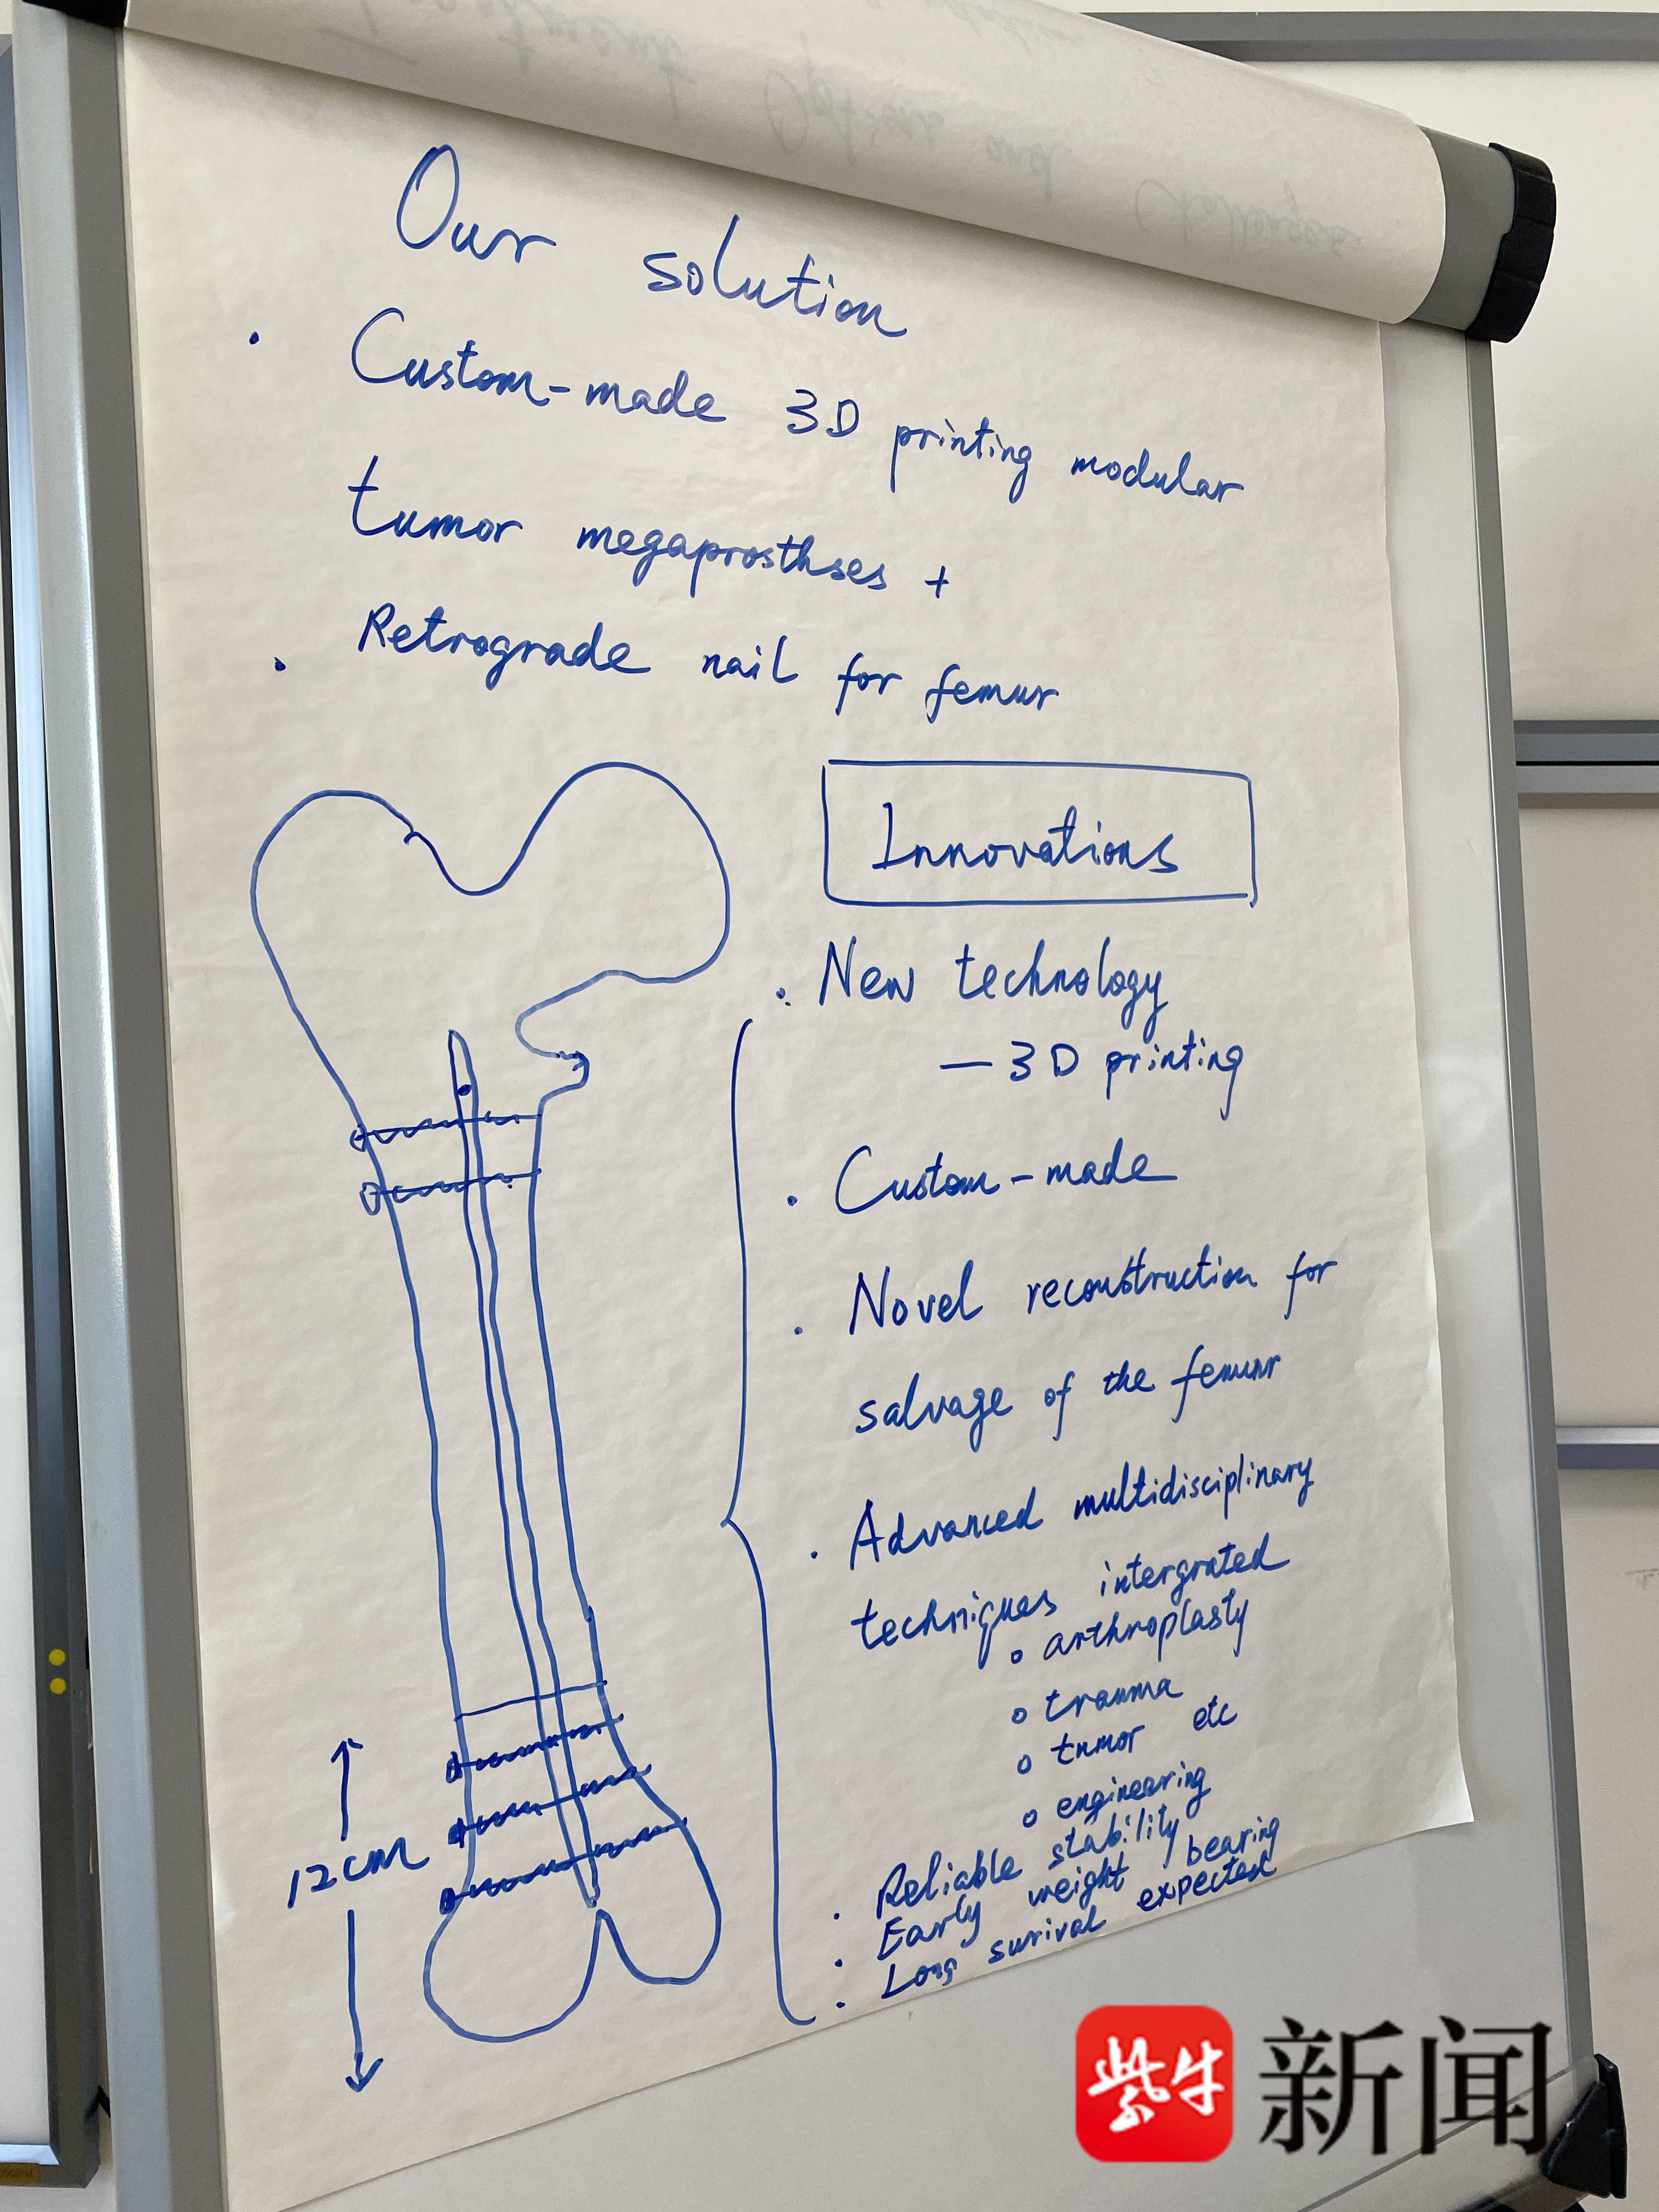 Our solution
· Custom-made 3D printing modular
tumor megaprosthses +
· Retrograde nail for femur
Innovations
· New technology
— 3D printing
· Custom-made
· Novel reconstruction for
salvage of the femur
· Advanced multidisciplinary
techniques intergrated
o arthroplasty
o trauma
o tumor etc
o engineering
· Reliable stability
· Early weight bearing
· Long surival expected
12cm
紫牛新闻